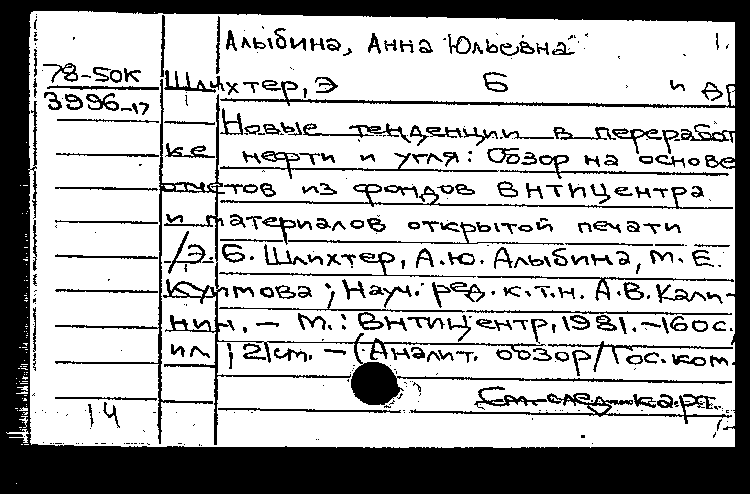 Алыбина, Анна Юльевна
78-50К
Шлихтер, Э Б и др
3996-17
Новые тенденции в переработ
ке нефти и угля: Обзор на основе
отчетов из фондов ВНТИЦентра
и материалов открытой печати
/Э.Б. Шлихтер, А.Ю. Алыбина, М.Е.
; Науч. ред. к.т.н. А.В. Кали-
нин. – М.: ВНТИЦентр, 1981. – 160 с.,
ил; 21 см. – (Аналит. обзор/Гос. ком.
См. след. карт.
14